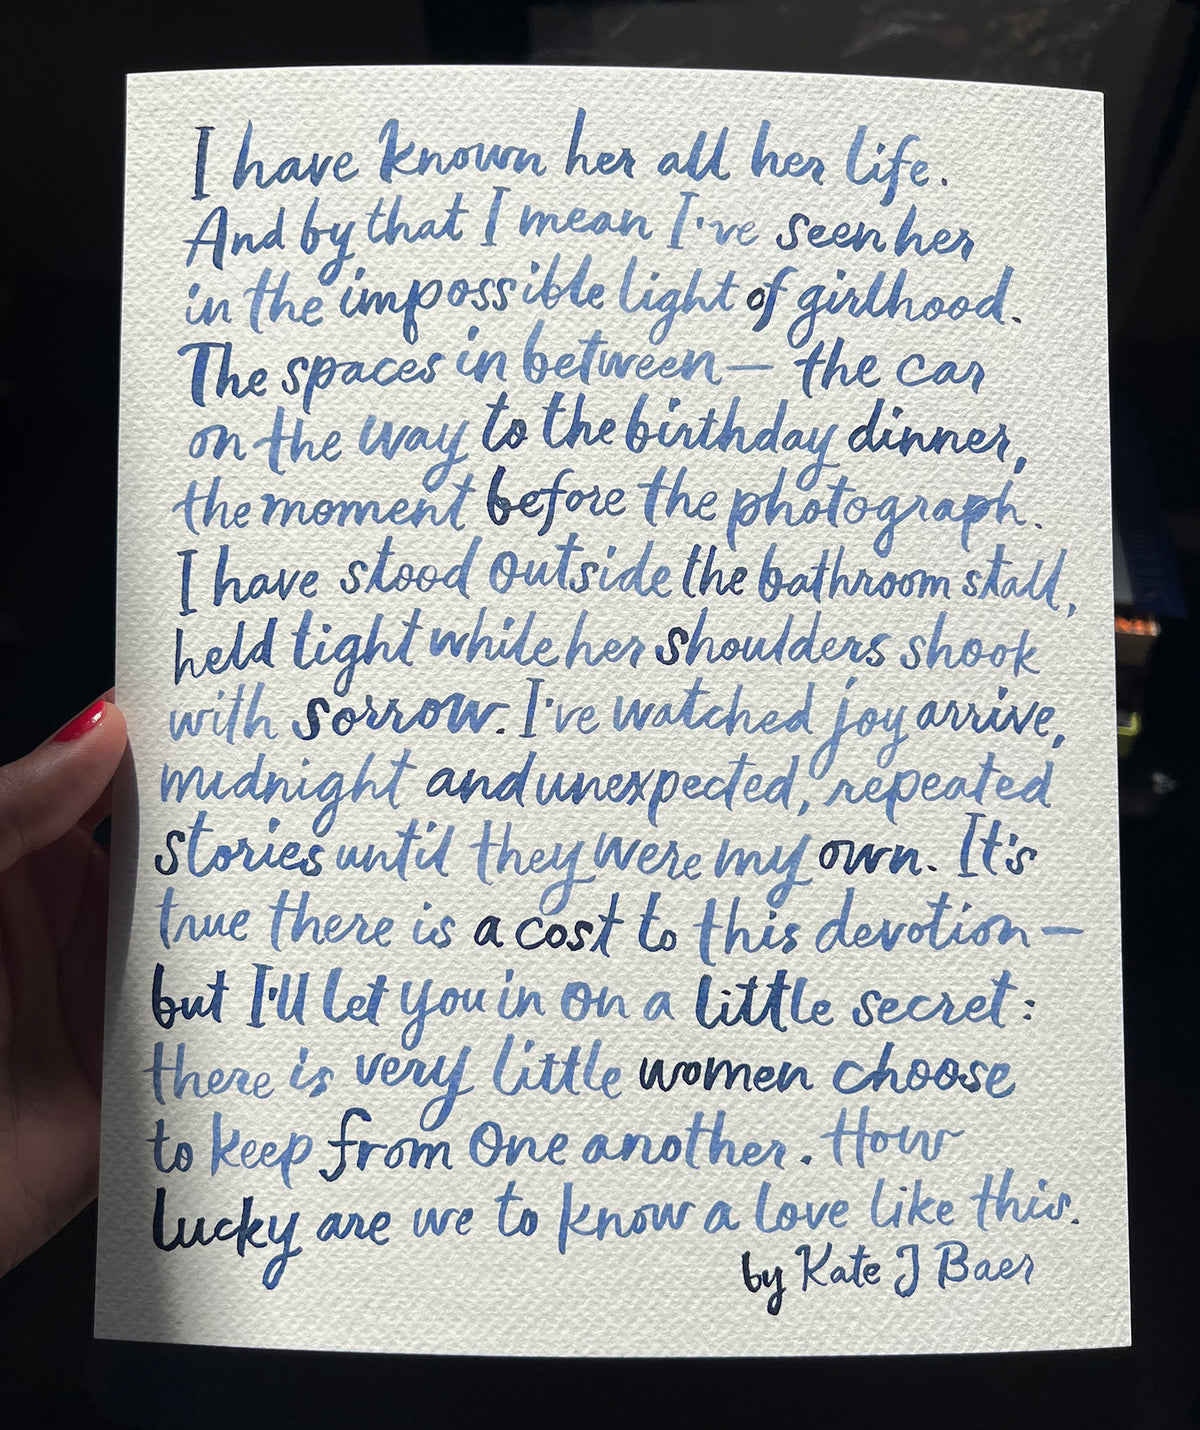 I have known her all her life.
And by that I mean I've seen her
in the impossible light of girlhood.
The spaces in between— the car
on the way to the birthday dinner,
the moment before the photograph.
I have stood outside the bathroom stall,
held tight while her shoulders shook
with sorrow. I've watched joy arrive,
midnight and unexpected, repeated
stories until they were my own. It's
true there is a cost to this devotion—
but I'll let you in on a little secret:
there is very little women choose
to keep from one another. How
lucky are we to know a love like this.
by Kate J Baer